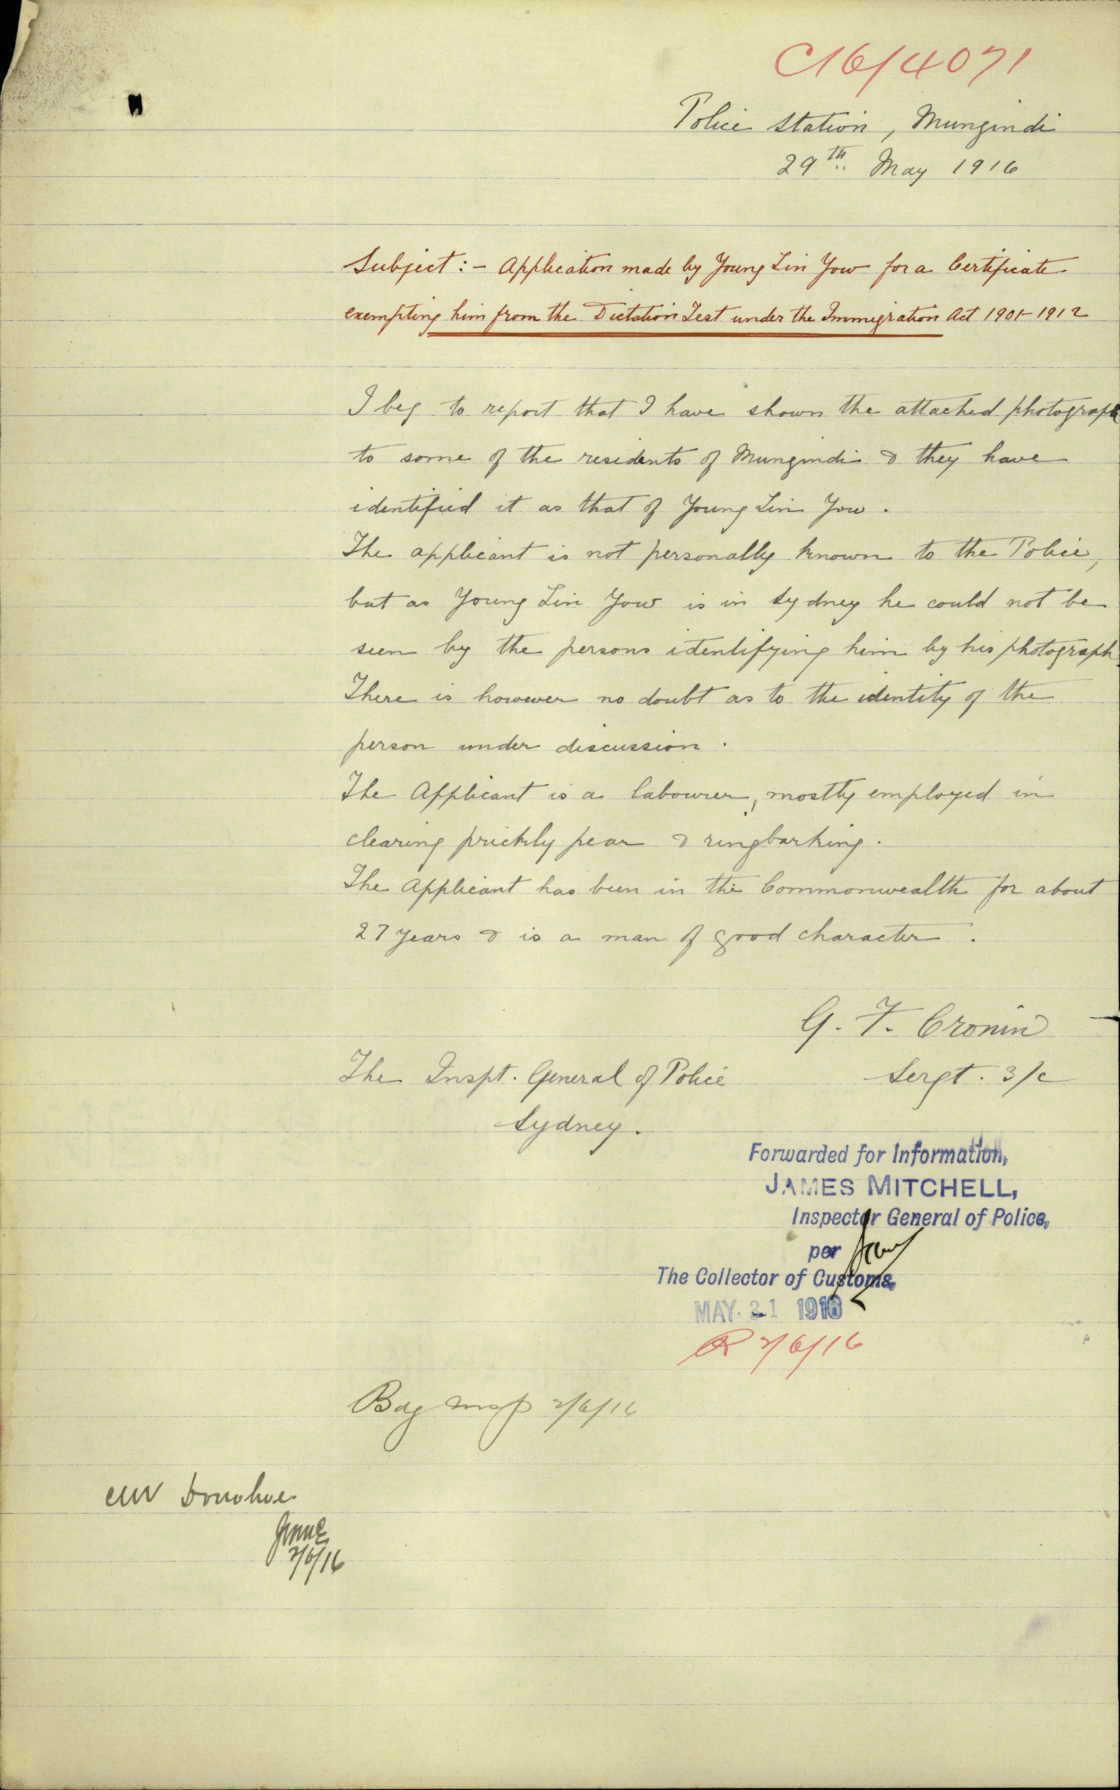 C16/4071
Police Station, Mungindi
29th May 1916
Subject:- Application made by Young Lin Yow for a Certificate
exempting him from the Dictation Test under the Immigration Act 1901-1912
I beg to report that I have shown the attached photograph
to some of the residents of Mungindi & they have
identified it as that of Young Lin Yow.
The applicant is not personally known to the Police,
but as Young Lin Yow is in Sydney he could not be
seen by the persons identifying him by his photograph.
There is however no doubt as to the identity of the
person under discussion.
The Applicant is a labourer, mostly employed in
clearing prickly pear & ringbarking.
The Applicant has been in the Commonwealth for about
27 years & is a man of good character.
G. F. Cronin
Sergt. 3/c
The Inspt. General of Police
Sydney.
Forwarded for Information,
JAMES MITCHELL,
Inspector General of Police,
per
The Collector of Customs.
MAY. 31 1916
R 2/6/16
2/6/16
Donohoe
2/6/16